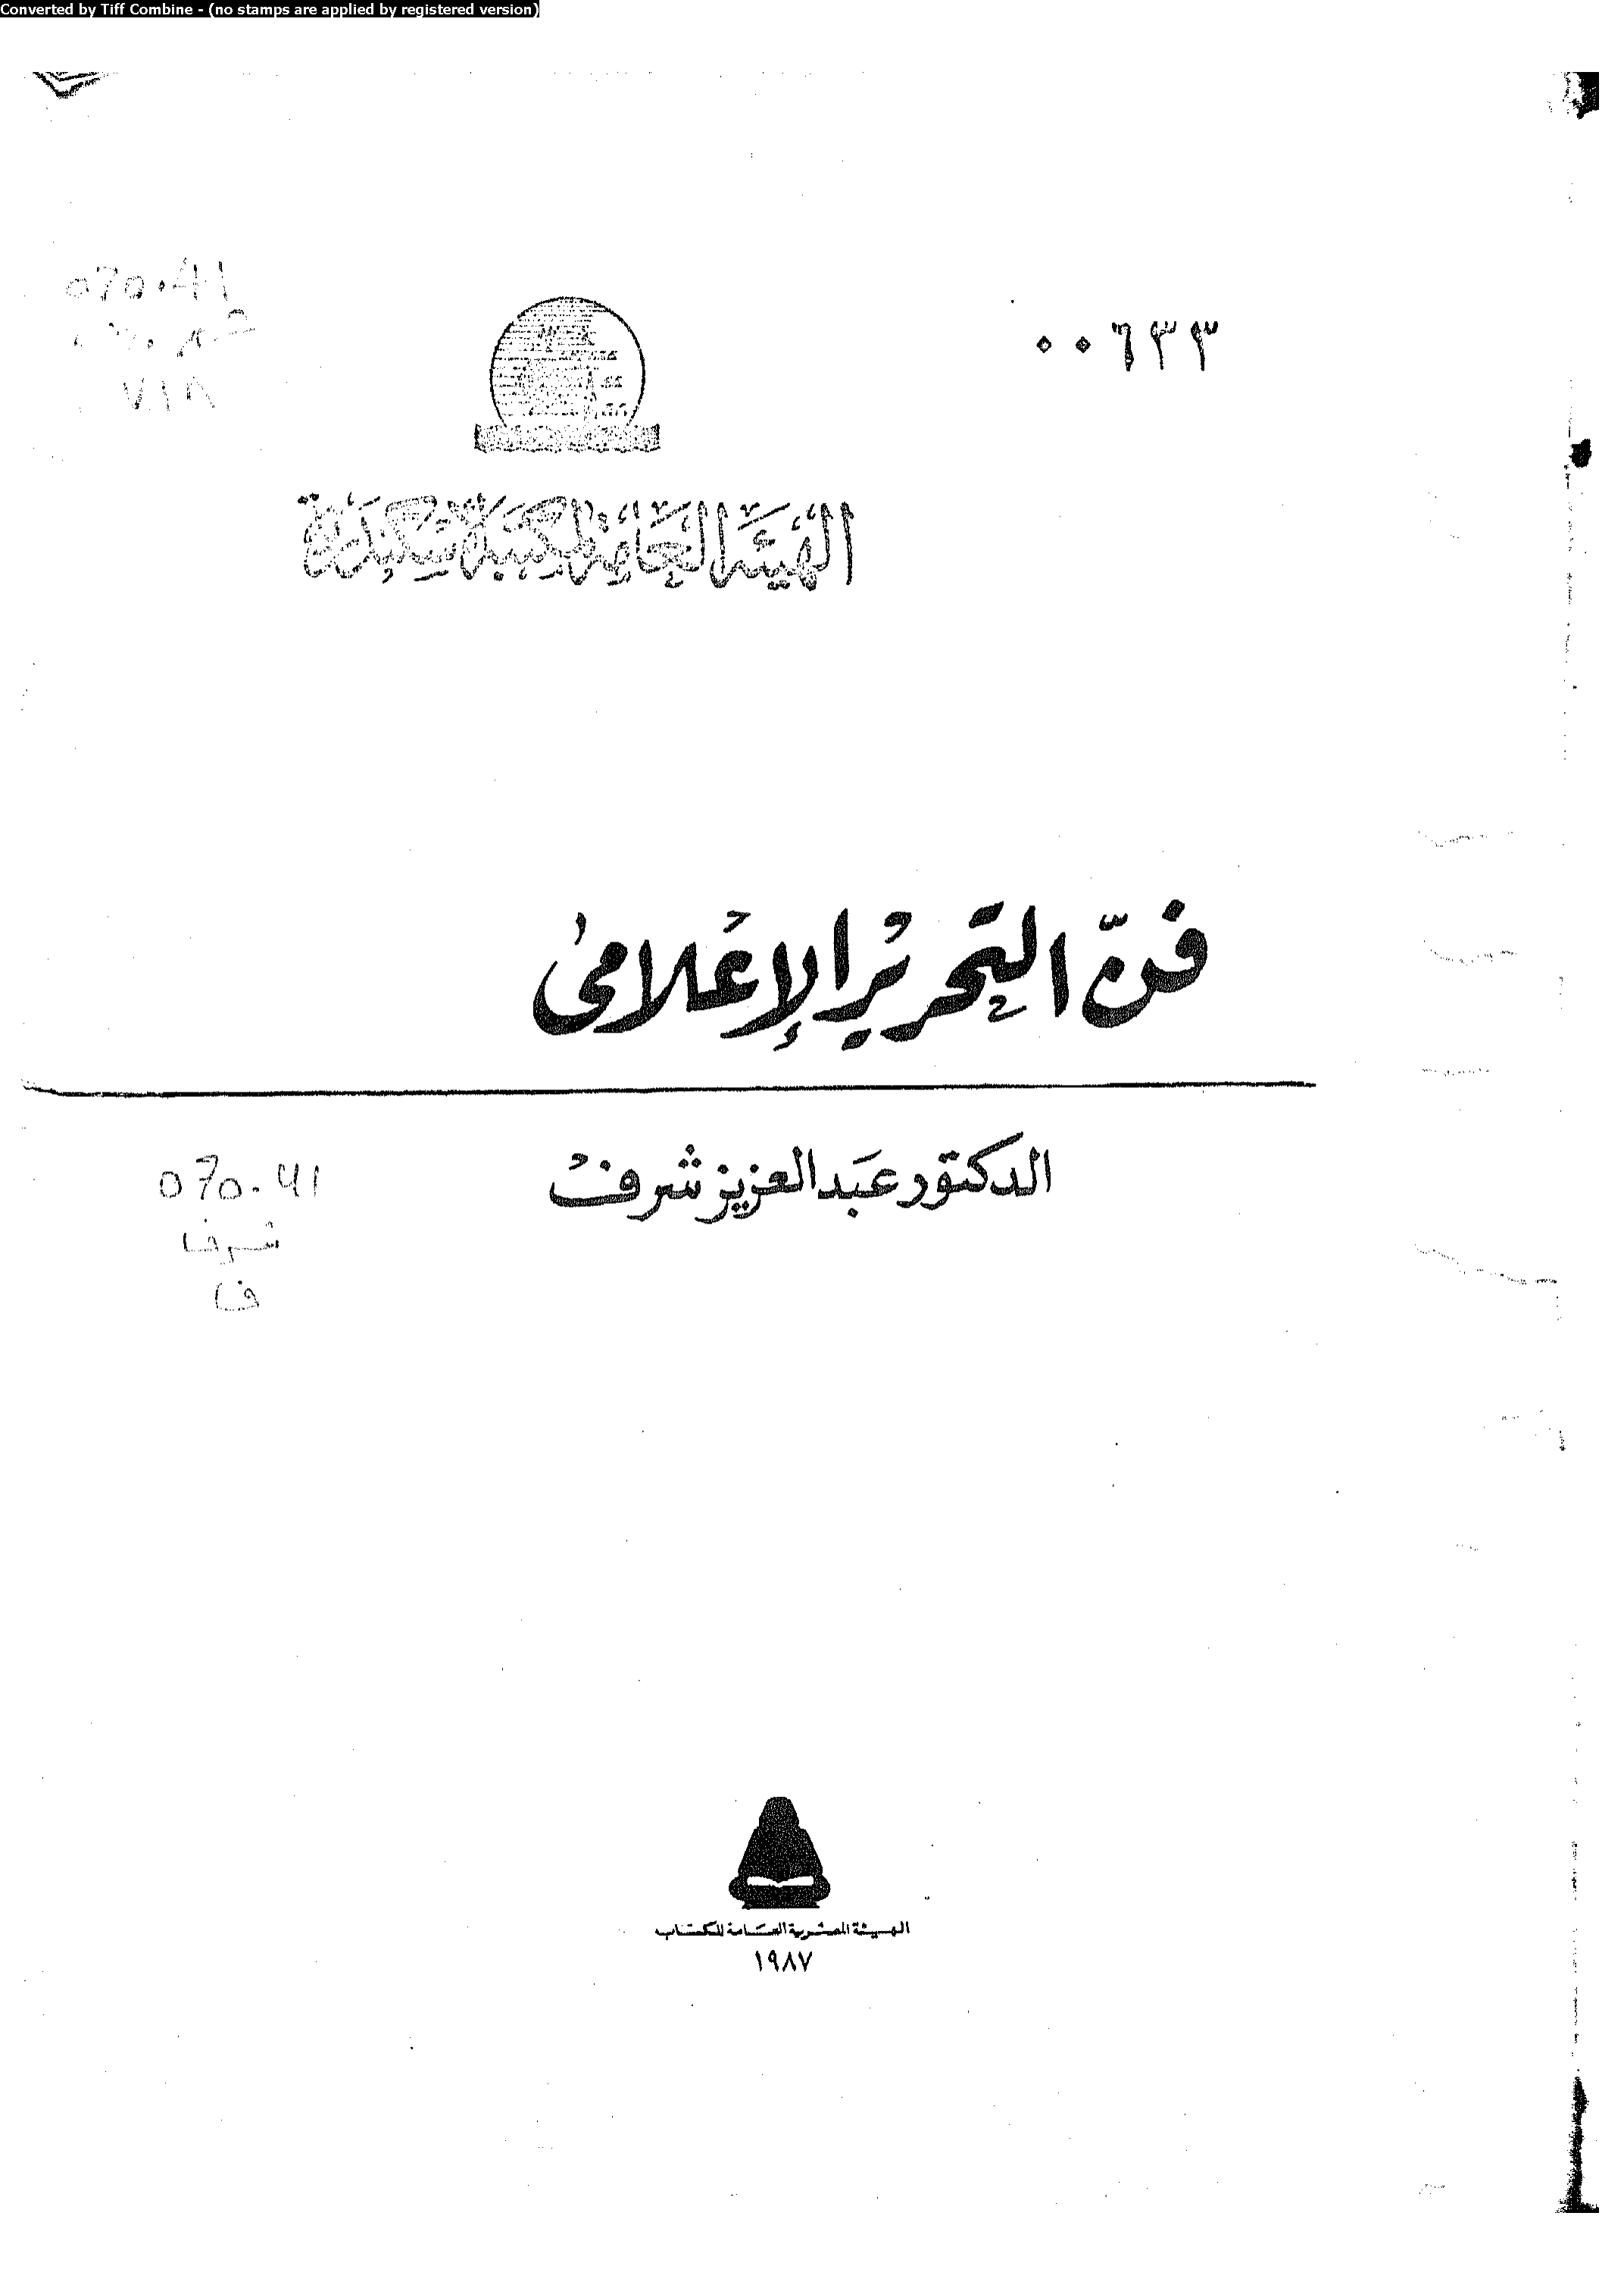 Converted by Tiff Combine - (no stamps are applied by registered version)
070.41
٠٠٦٣٣
الهيئة العامة لمكتبة الإسكندرية
فن التحرير الإعلامى
الدكتور عبد العزيز شرف
070.41
شرف
ف
الهيئة المصرية العامة للكتاب
١٩٨٧